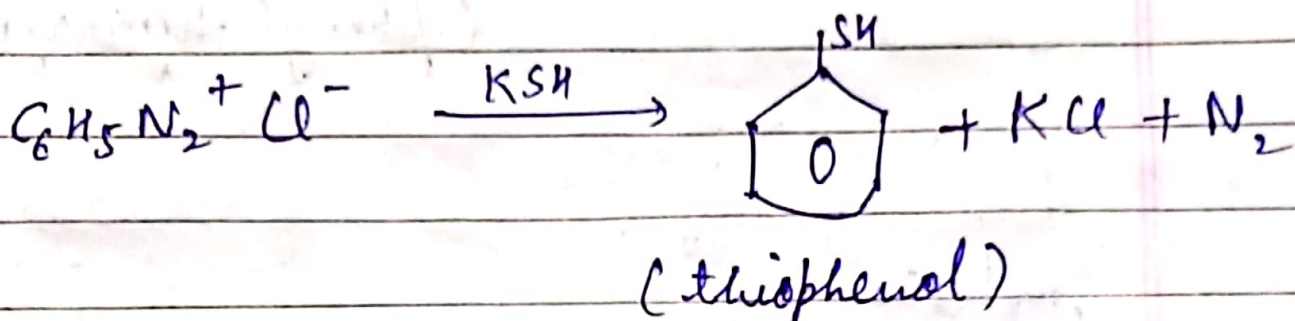 C₆H₅N₂⁺ Cl⁻ KSH → SH + KCl + N₂
(thiophenol)